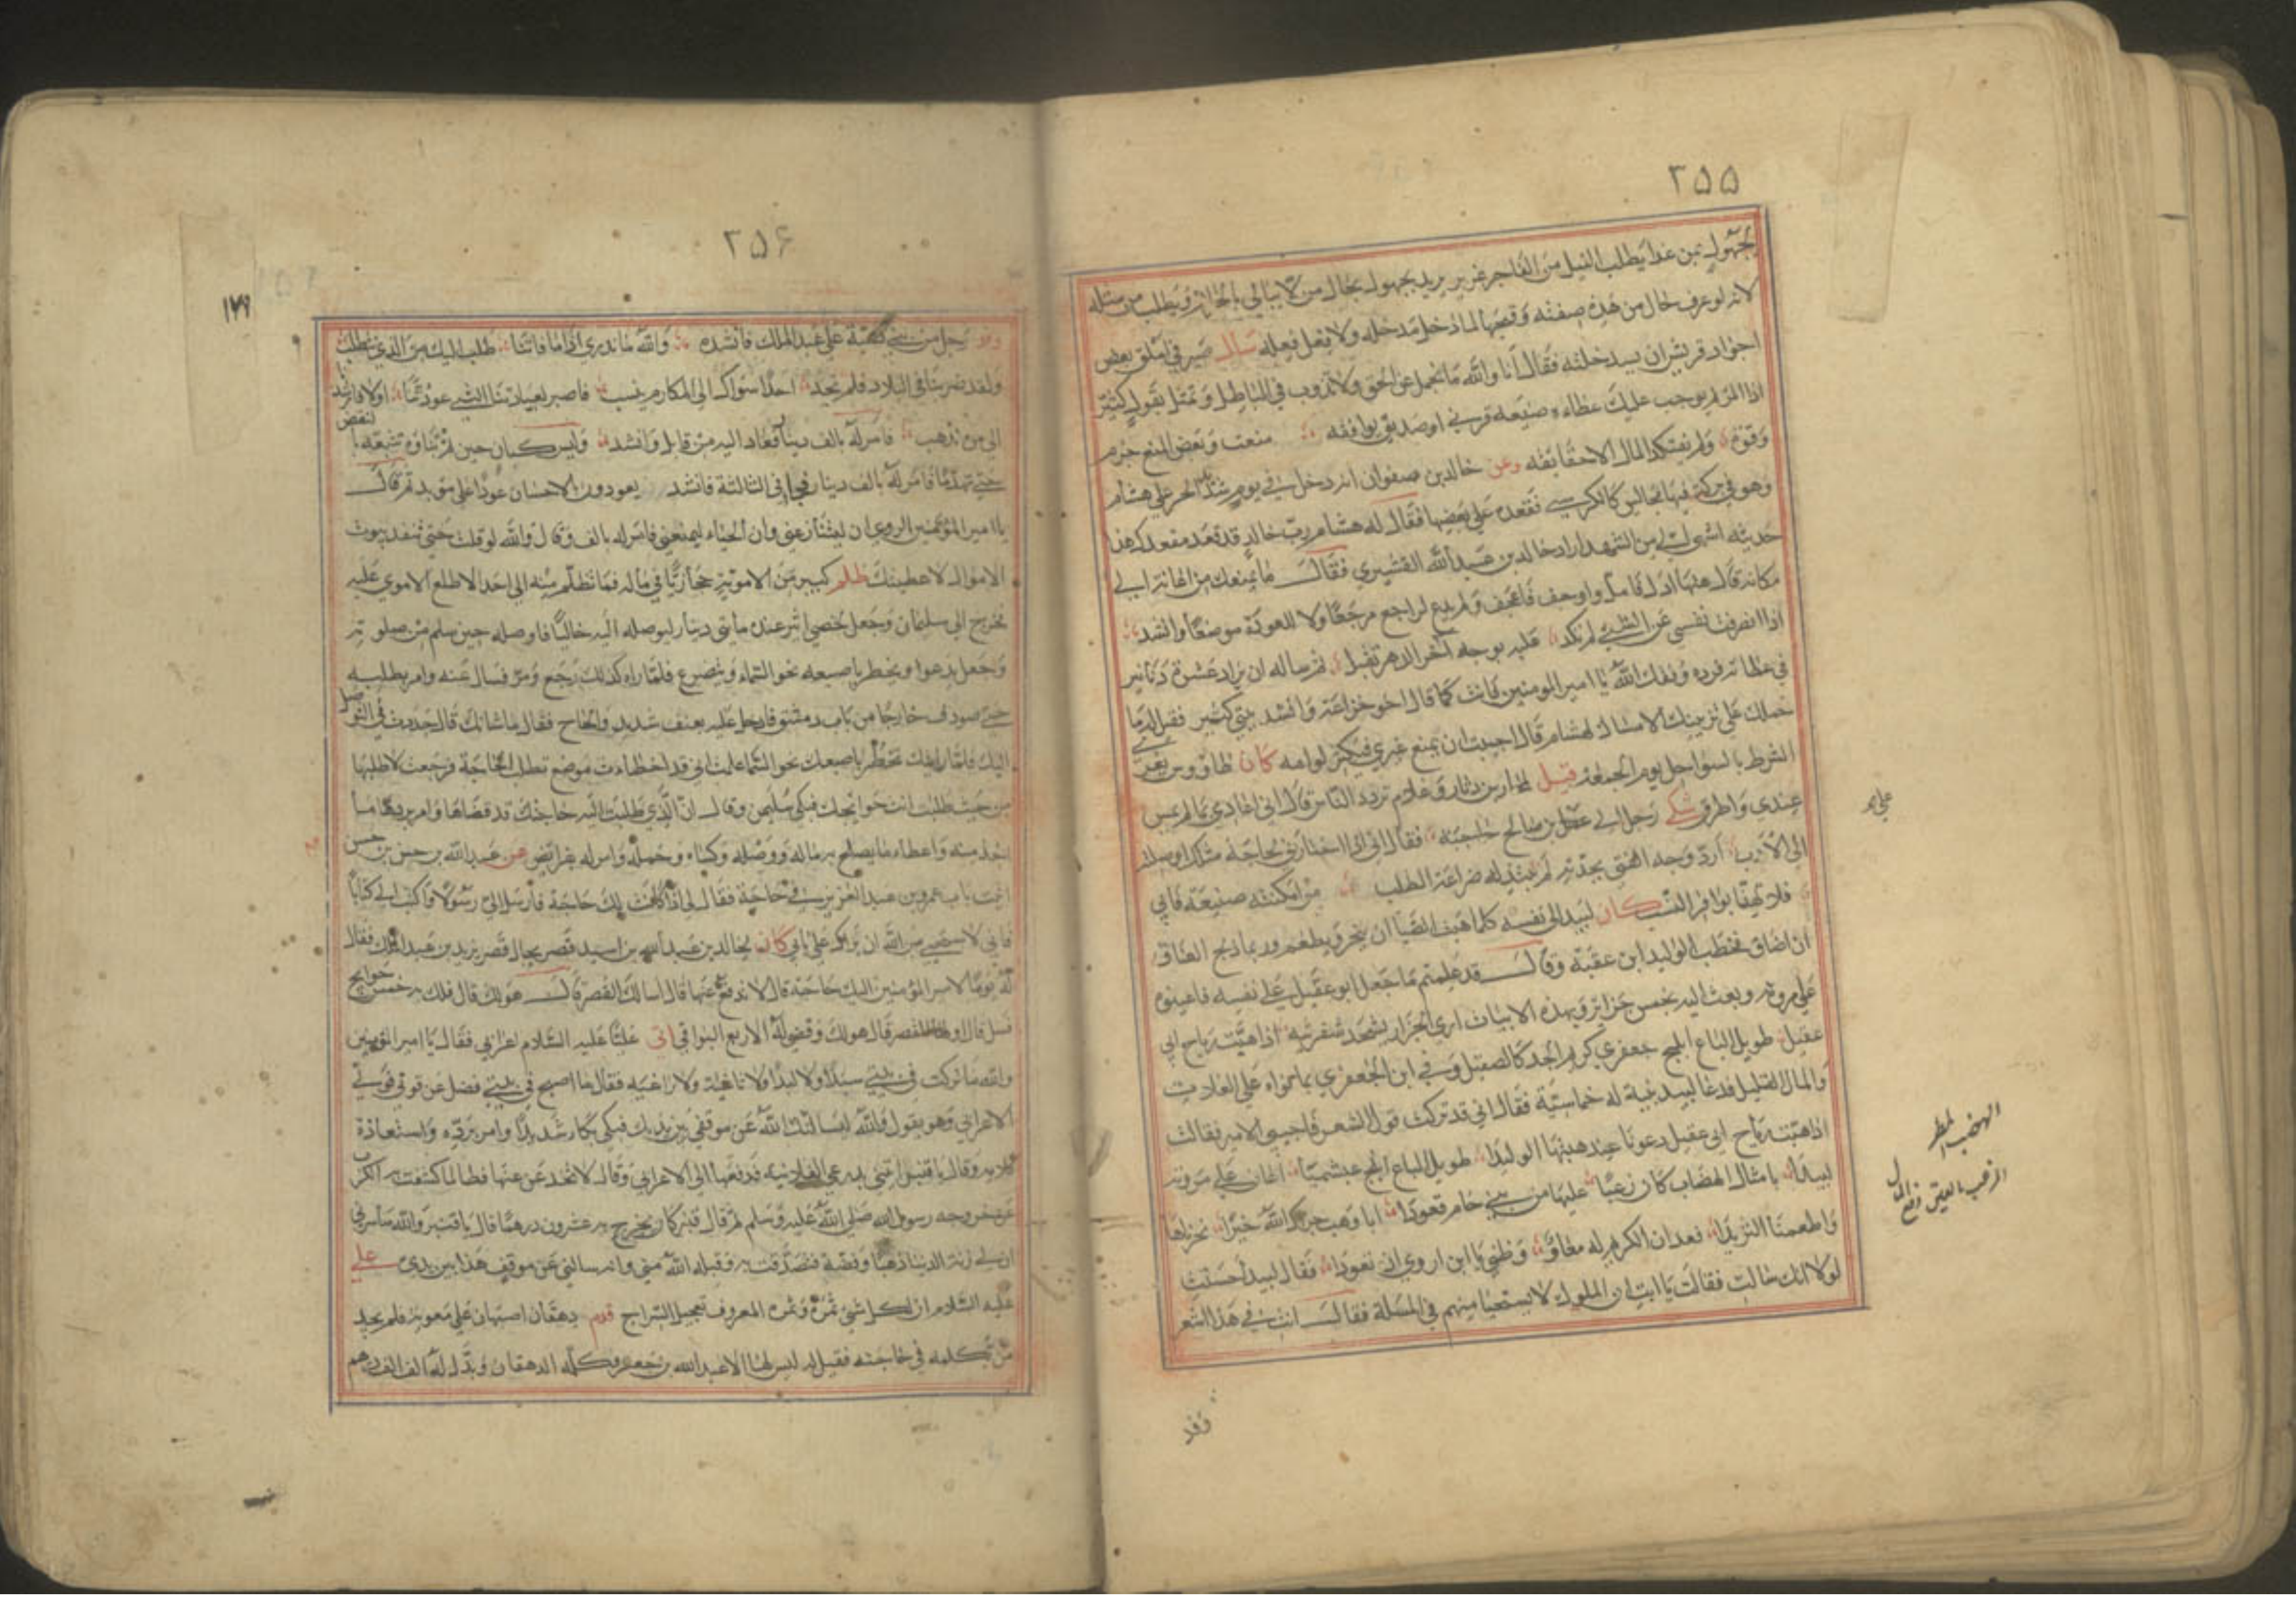 ٢٥٥
بمجهول بمن غدا يطلب النيل من الفاجر غرير يريد بمجهول بحال من لا يبالي ويطلب من مثله
لانه لو عرف حال من هذه صفته وقصتها لما دخل مدخله ولا يفعل فعله سال في املق بعض
اجواد قريش ان يسد خلته فقال انا والله ما نجمد عن الحق ولا نذوب في الباطل وتمثل بقول كثير
اذا المرء لم يوجب عليك عطاءه صنيعه قربى او صديق يوافقه منعت وبعض المنع حزم
وقوة ولم يفتكد المال الا حقائقه وعن خالد بن صفوان انه دخل في يوم شديد الحر على هشام
وهو في بركة فيها مجالس كالكرسي فقعد على بعضها فقال له هشام رب خالد قد قعد مقعدك هذا
حديثه اشهى الي من الشهد اراد خالد بن عبد الله القشيري فقال ما يمنعك من اعادته الى
مكانه قال هيهات ادل فامل واوجف فاعجف ولم يدع لراجع مرجعا ولا للعودة موضعا وانشد
اذا انصرفت نفسي عن الشيء لم تكد عليه بوجه آخر الدهر تقبل ثم ساله ان يزاد عشرة دنانير
في عطائه فرده وفقك الله يا امير المومنين فانت كما قال اخو خزاعة وانشد بيتي كثير فقيل له ما
حملك على تزيينك الامساك لهشام قال احببت ان يمنع غيري فيكثر لوامه كان طاووس يغير
الشرط بالسواحل يوم الجمعة قيل لمحارب بن دثار وغلام تردد الناس قال اني اغادي
عندي واطرق شكى رجل الى بن صالح حاجبه فقال
الى الاقرب ارد وجه الفتى بجدته لم تبتذله ضراعة الطلب من امكنته صنيعة فابى
فلا تهيا بوافر النشب كان لبيد الى نفسه كلما هبت الصبا ان ينحر ويطعم وربما ذبح العناق
ان اضاق فخطب الوليد ابن عقبة وقال قد علمتم ما جعل ابو عقيل على نفسه فاعينوه
على مروته وبعث اليه بخمس جزائر وبهذه الابيات ارى الجزار يشحذ شفرتيه اذا هبت رياح ابي
عقيل طويل الباع ابلج جعفري كريم الجد كالصقيل وفى ابن الجعفري بما نواه على العلات
والمال القليل فدعا لبيد بنية له خماسية فقال اني قد تركت قول الشعر فاجيبي الامير فقالت
اذا هبت رياح ابي عقيل دعونا عند هبتها الوليدا طويل الباع ابلج عبشميا اعان على مروته
لبيدا بامثال الهضاب كان زغبا عليها من بني حام قعودا ابا وهب جزاك الله خيرا نحرناها
واطعمنا الثريدا فعد ان الكريم له معاد وظني يا ابن اروى ان تعودا فقال لبيد احسنت
لولا انك سالت فقالت يا ابت ان الملوك لا يستحيا منهم في المسلة فقال انت في هذا اشعر
وفد
الهضب المطر
٢٥۶
١٧٩
وفد رجل من بني ضبة على عبد الملك فانشده والله ما ندري اذا ما فاتنا طلب اليك من الذي نطلب
ولقد ضربنا في البلاد فلم نجد احدا سواك الى المكارم ينسب فاصبر لعادتنا التي عودتنا اولا فارشدنا
الى من نذهب فامر له بالف دينار فعاد اليه من قابل وانشد وليس كبان حين تم بناؤه تتبعه بالنقض
حتى تهدما فامر له بالف دينار فجا في الثالثة فانشد يعودون الاحسان عودا على بد ثم قال
يا امير المؤمنين الروي ان وان الحياء ليمنعني فامر له بالف وقال والله لو قلت حتى تنفد بيوت
الاموال لاعطيتك ظلم كبير من الاموية حجازيا في ماله فما تظلم منه الى احد الا اطلع الاموي عليه
فخرج الى سليمان وجعل لخصي اثر عنده مايتي دينار ليوصله اليه خاليا فاوصله حين سلم من صلوته
وجعل يدعوا ويخطر باصبعه نحو السماء ويتضرع فلما راه كذلك رجع ومر فسال عنه وامر بطلبه
حتى صودف خارجا من باب دمشق فادخل عليه بعنف شديد والحاح فقال ما شانك قال جددت في التوصل
اليك فلما رايتك تخطر باصبعك نحو السماء علمت اني قد اخطات موضع تطلب الحاجة فرجعت لاطلبها
من حيث طلبت انت حوائجك فبكى سليمن وقال ان الذي طلبت اليه حاجتك قد قضاها وامر برد ما
اخذ منه واعطاء ما يصلح به ماله ووصله وكساه وحمله وامر له بفرائض عن عبد الله بن حسن بن حسن
اتيت باب عمر بن عبد العزيز في حاجة فقال لي اذا كانت لك حاجة فارسل الي رسولا واكتب الي كتابا
فاني لاستحيي من الله ان يراك على بابي كان لخالد بن عبد الله بن اسيد قصر بحيال قصر يزيد بن عبد الملك فقال
له يوما لامير المؤمنين اليك حاجة قال لا تدفع عنها قال اسالك القصر قال هو لك قال فلك به خمس حوائج
فسل قال اولها القصر قال هو لك وقضي له الاربع البواقي اتى عليا عليه السلام اعرابي فقال يا امير المؤمنين
والله ما تركت في بيتي سبدا ولا لبدا ولا ثاغية ولا راغية فقال ما اصبح في بيتي فضل عن قوتي فولى
الاعرابي وهو يقول والله ليسالنك الله عن موقفي بين يديك فبكى بكاء شديدا وامر برده واستعاذة
كلامه وقال يا قنبر ائتني بدرعي الفلانية فدفعها الى الاعرابي وقال لا تخدعن عنها فطالما كشفت بها الكرب
عن وجه رسول الله صلى الله عليه وسلم ثم قال قنبر كان يخرج به عشرون درهما قال يا قنبر والله ما سرني
ان لي زنة الدنيا ذهبا وفضة فتصدقت به وقبله الله مني وانه سالني عن موقف هذا بين يدي علي
عليه السلام ان لكل شي ثمرة وثمرة المعروف تعجيل السراج قدم دهقان اصبهان على معوية فلم يجد
من يكلمه في حاجته فقيل له ليس لها الا عبد الله بن جعفر فكلمه الدهقان وبذل له الف الف درهم